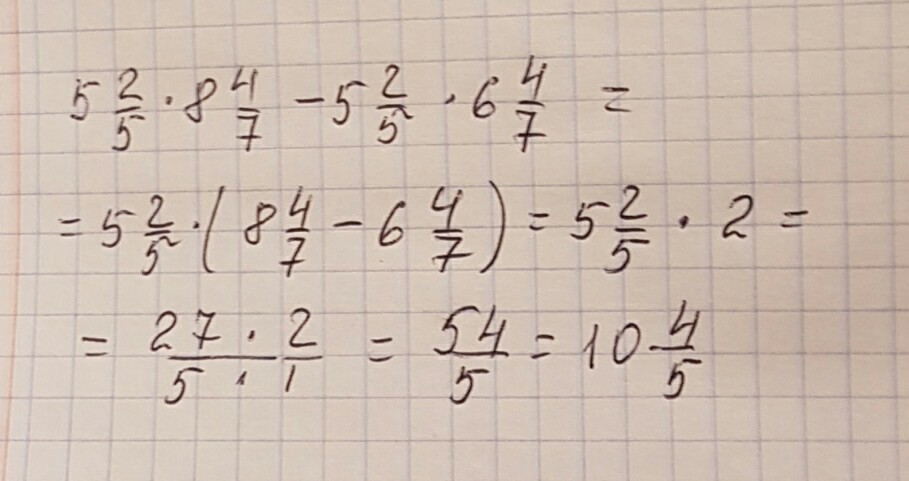 5 2/5 · 8 4/7 − 5 2/5 · 6 4/7 =
= 5 2/5 · (8 4/7 − 6 4/7) = 5 2/5 · 2 =
= 27 · 2 / 5 · 1 = 54/5 = 10 4/5